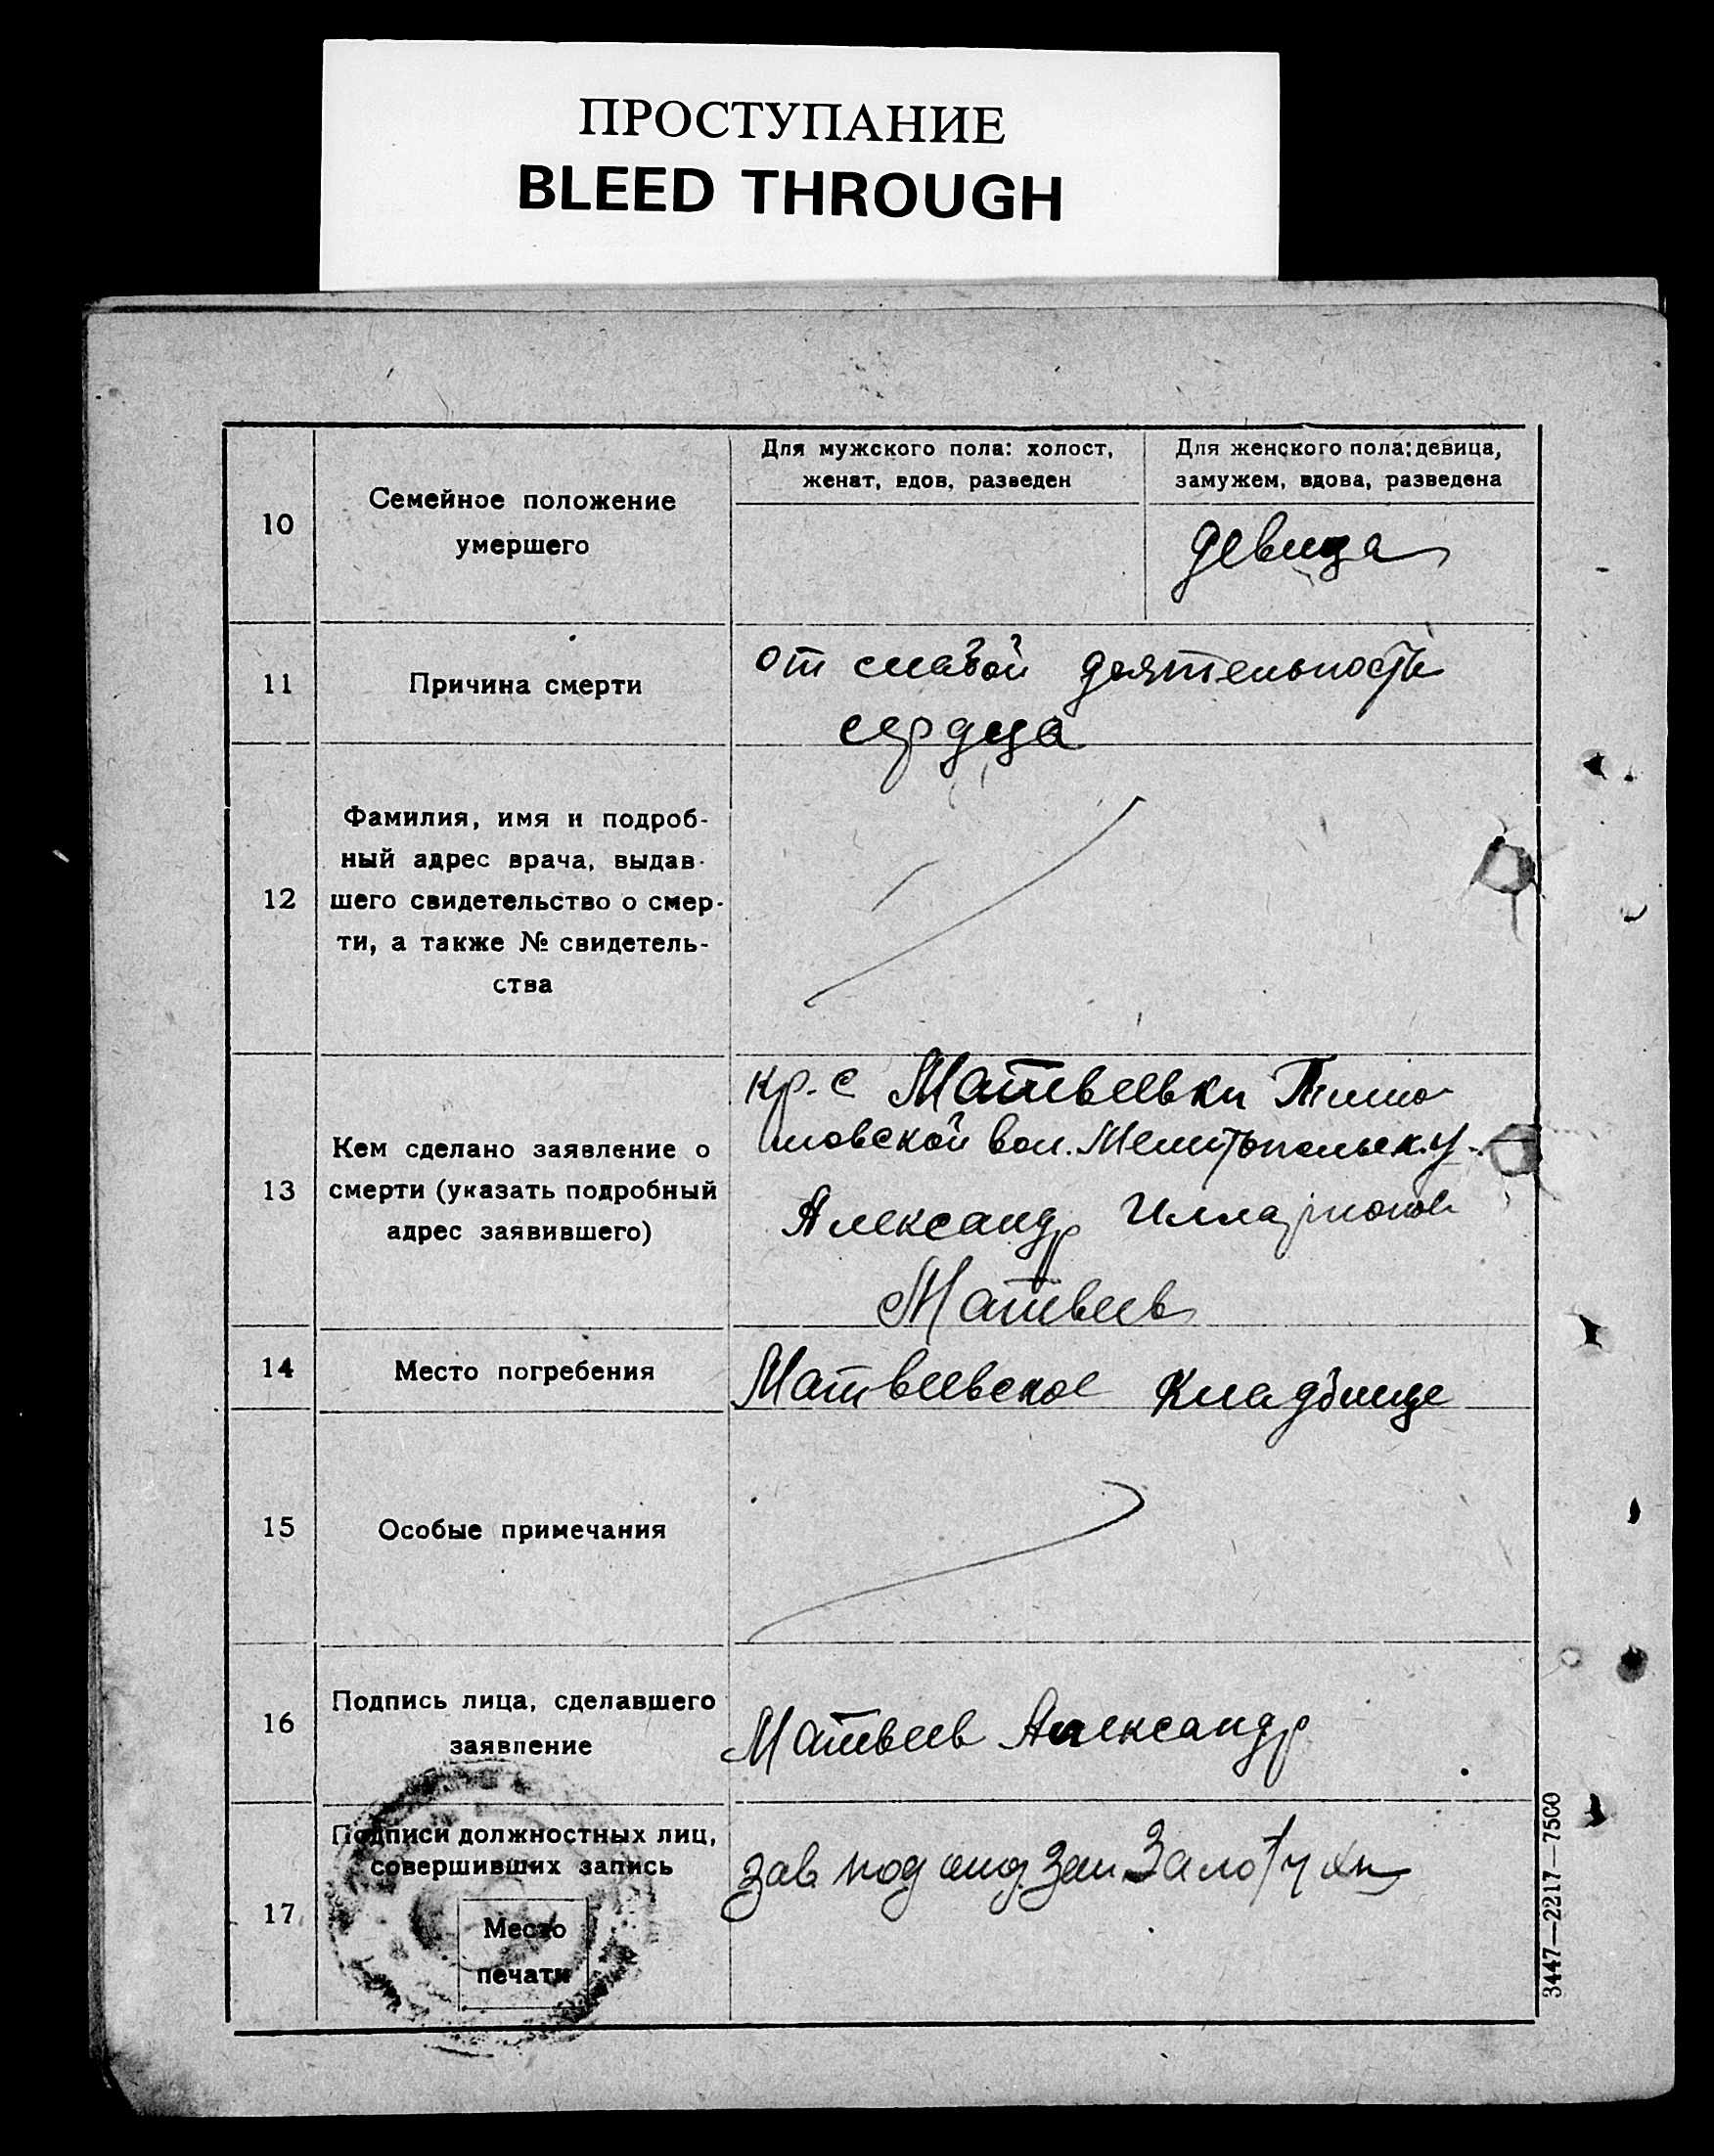 ПРОСТУПАНИЕ
BLEED THROUGH
10
Семейное положение
умершего
Для мужского пола: холост,
женат, вдов, разведен
Для женского пола: девица,
замужем, вдова, разведена
девица
11
Причина смерти
от слабой деятельности
сердца
12
Фамилия, имя и подроб-
ный адрес врача, выдав-
шего свидетельство о смер-
ти, а также № свидетель-
ства
13
Кем сделано заявление о
смерти (указать подробный
адрес заявившего)
кр. с Матвеевки Тимо
шовской вол. Мелитопольск. у.
Александр Илларионов
Матвеев
14
Место погребения
Матвеевское Кладбище
15
Особые примечания
16
Подпись лица, сделавшего
заявление
Матвеев Александр
17
Подписи должностных лиц,
совершивших запись
Место
печати
зав под
3447—2217—7500